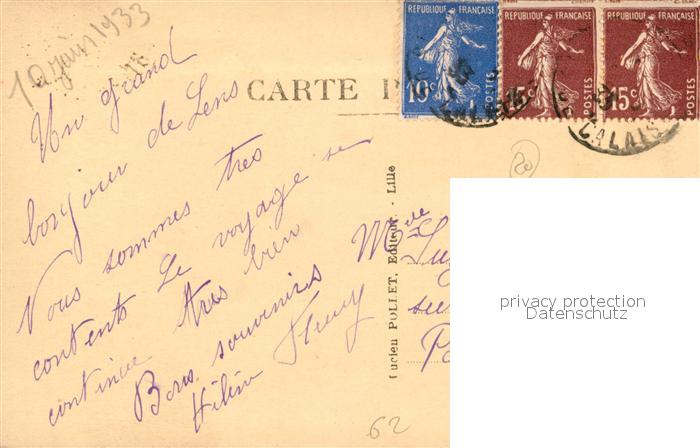 10 juin 1933
CARTE P
Un grand
bonjour de Lens
Nous sommes tres
contents Le voyage se
continue tres bien
Bons souvenirs
Hélène Fleury
Lucien POLLET, Editeur. - Lille
Melle Suz
Pa
REPUBLIQUE FRANÇAISE
10c
POSTES
REPUBLIQUE FRANÇAISE
15c
POSTES
REPUBLIQUE FRANÇAISE
15c
POSTES
CALAIS
20
62
privacy protection
Datenschutz